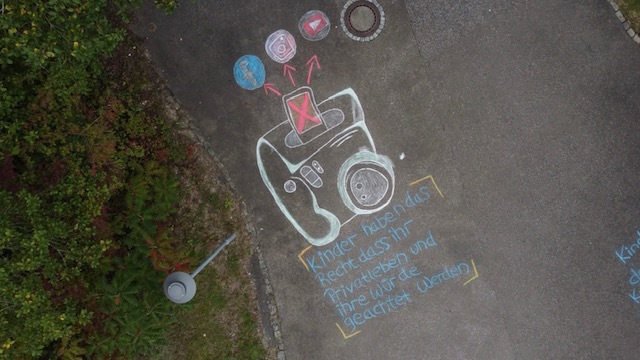 Kinder haben das
Recht dass ihr
Privatleben und
ihre würde
geachtet werden
Kin
d